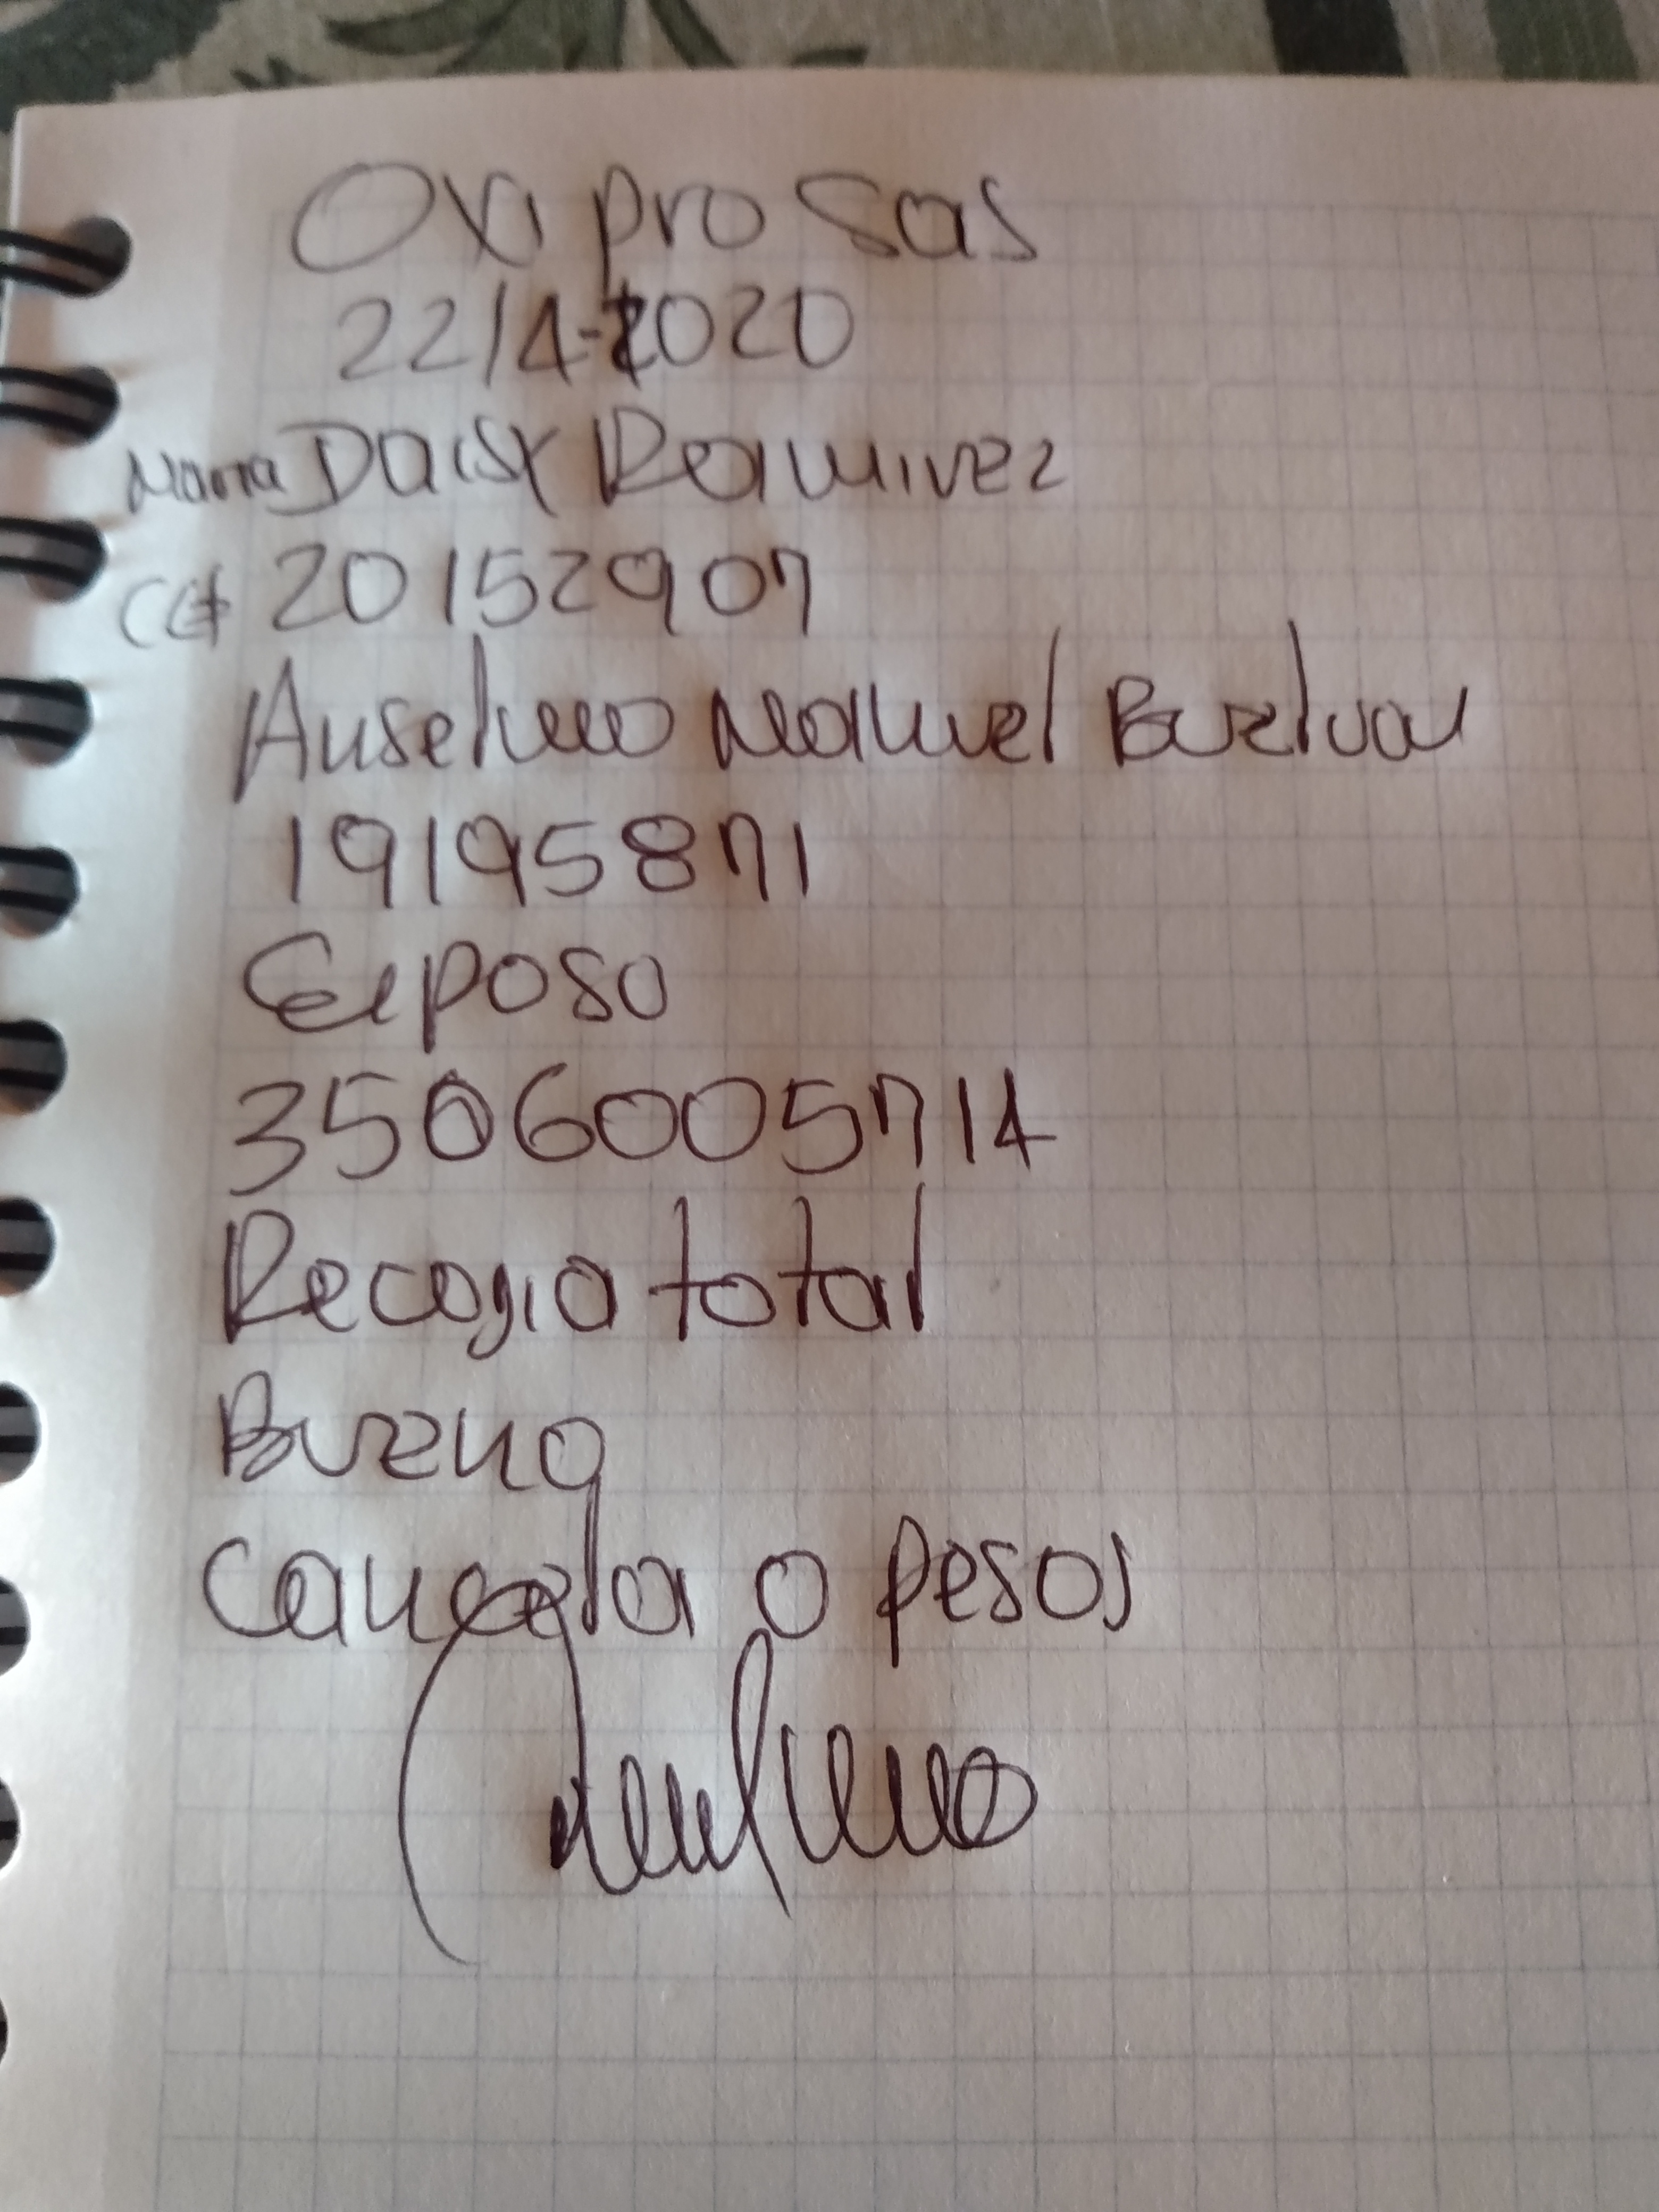 Oxi pro Sas
22/4-2020
Maria Daisy Ramirez
CC# 20152907
Anselmo Manuel
19195871
Esposo
3506005714
Recogia total
Buena
Cancela 0 pesos